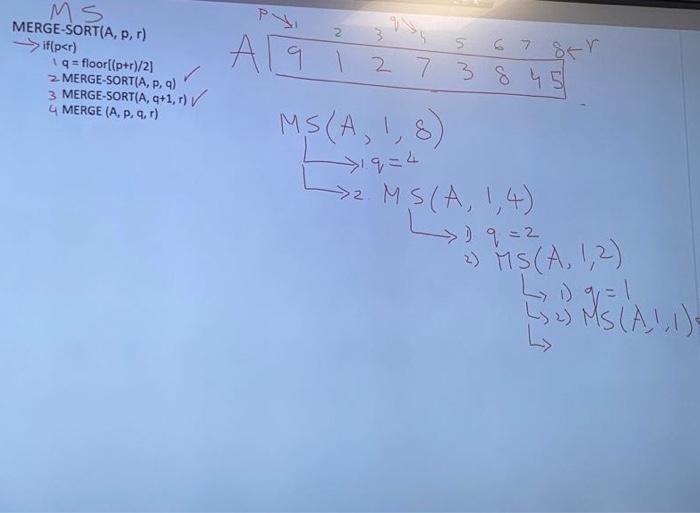 MS
MERGE-SORT(A, p, r)
→ if(p<r)
1 q = floor[(p+r)/2]
2 MERGE-SORT(A, p, q) ✓
3 MERGE-SORT(A, q+1, r) ✓
4 MERGE (A, p, q, r)
p 1 2 3 q 4 5 6 7 8 ← r
A 9 1 2 7 3 8 4 5
MS(A, 1, 8)
→ 1 q = 4
→ 2. MS(A, 1, 4)
→ 1) q = 2
2) MS(A, 1, 2)
→ 1) q = 1
→ 2) MS(A, 1, 1)
→